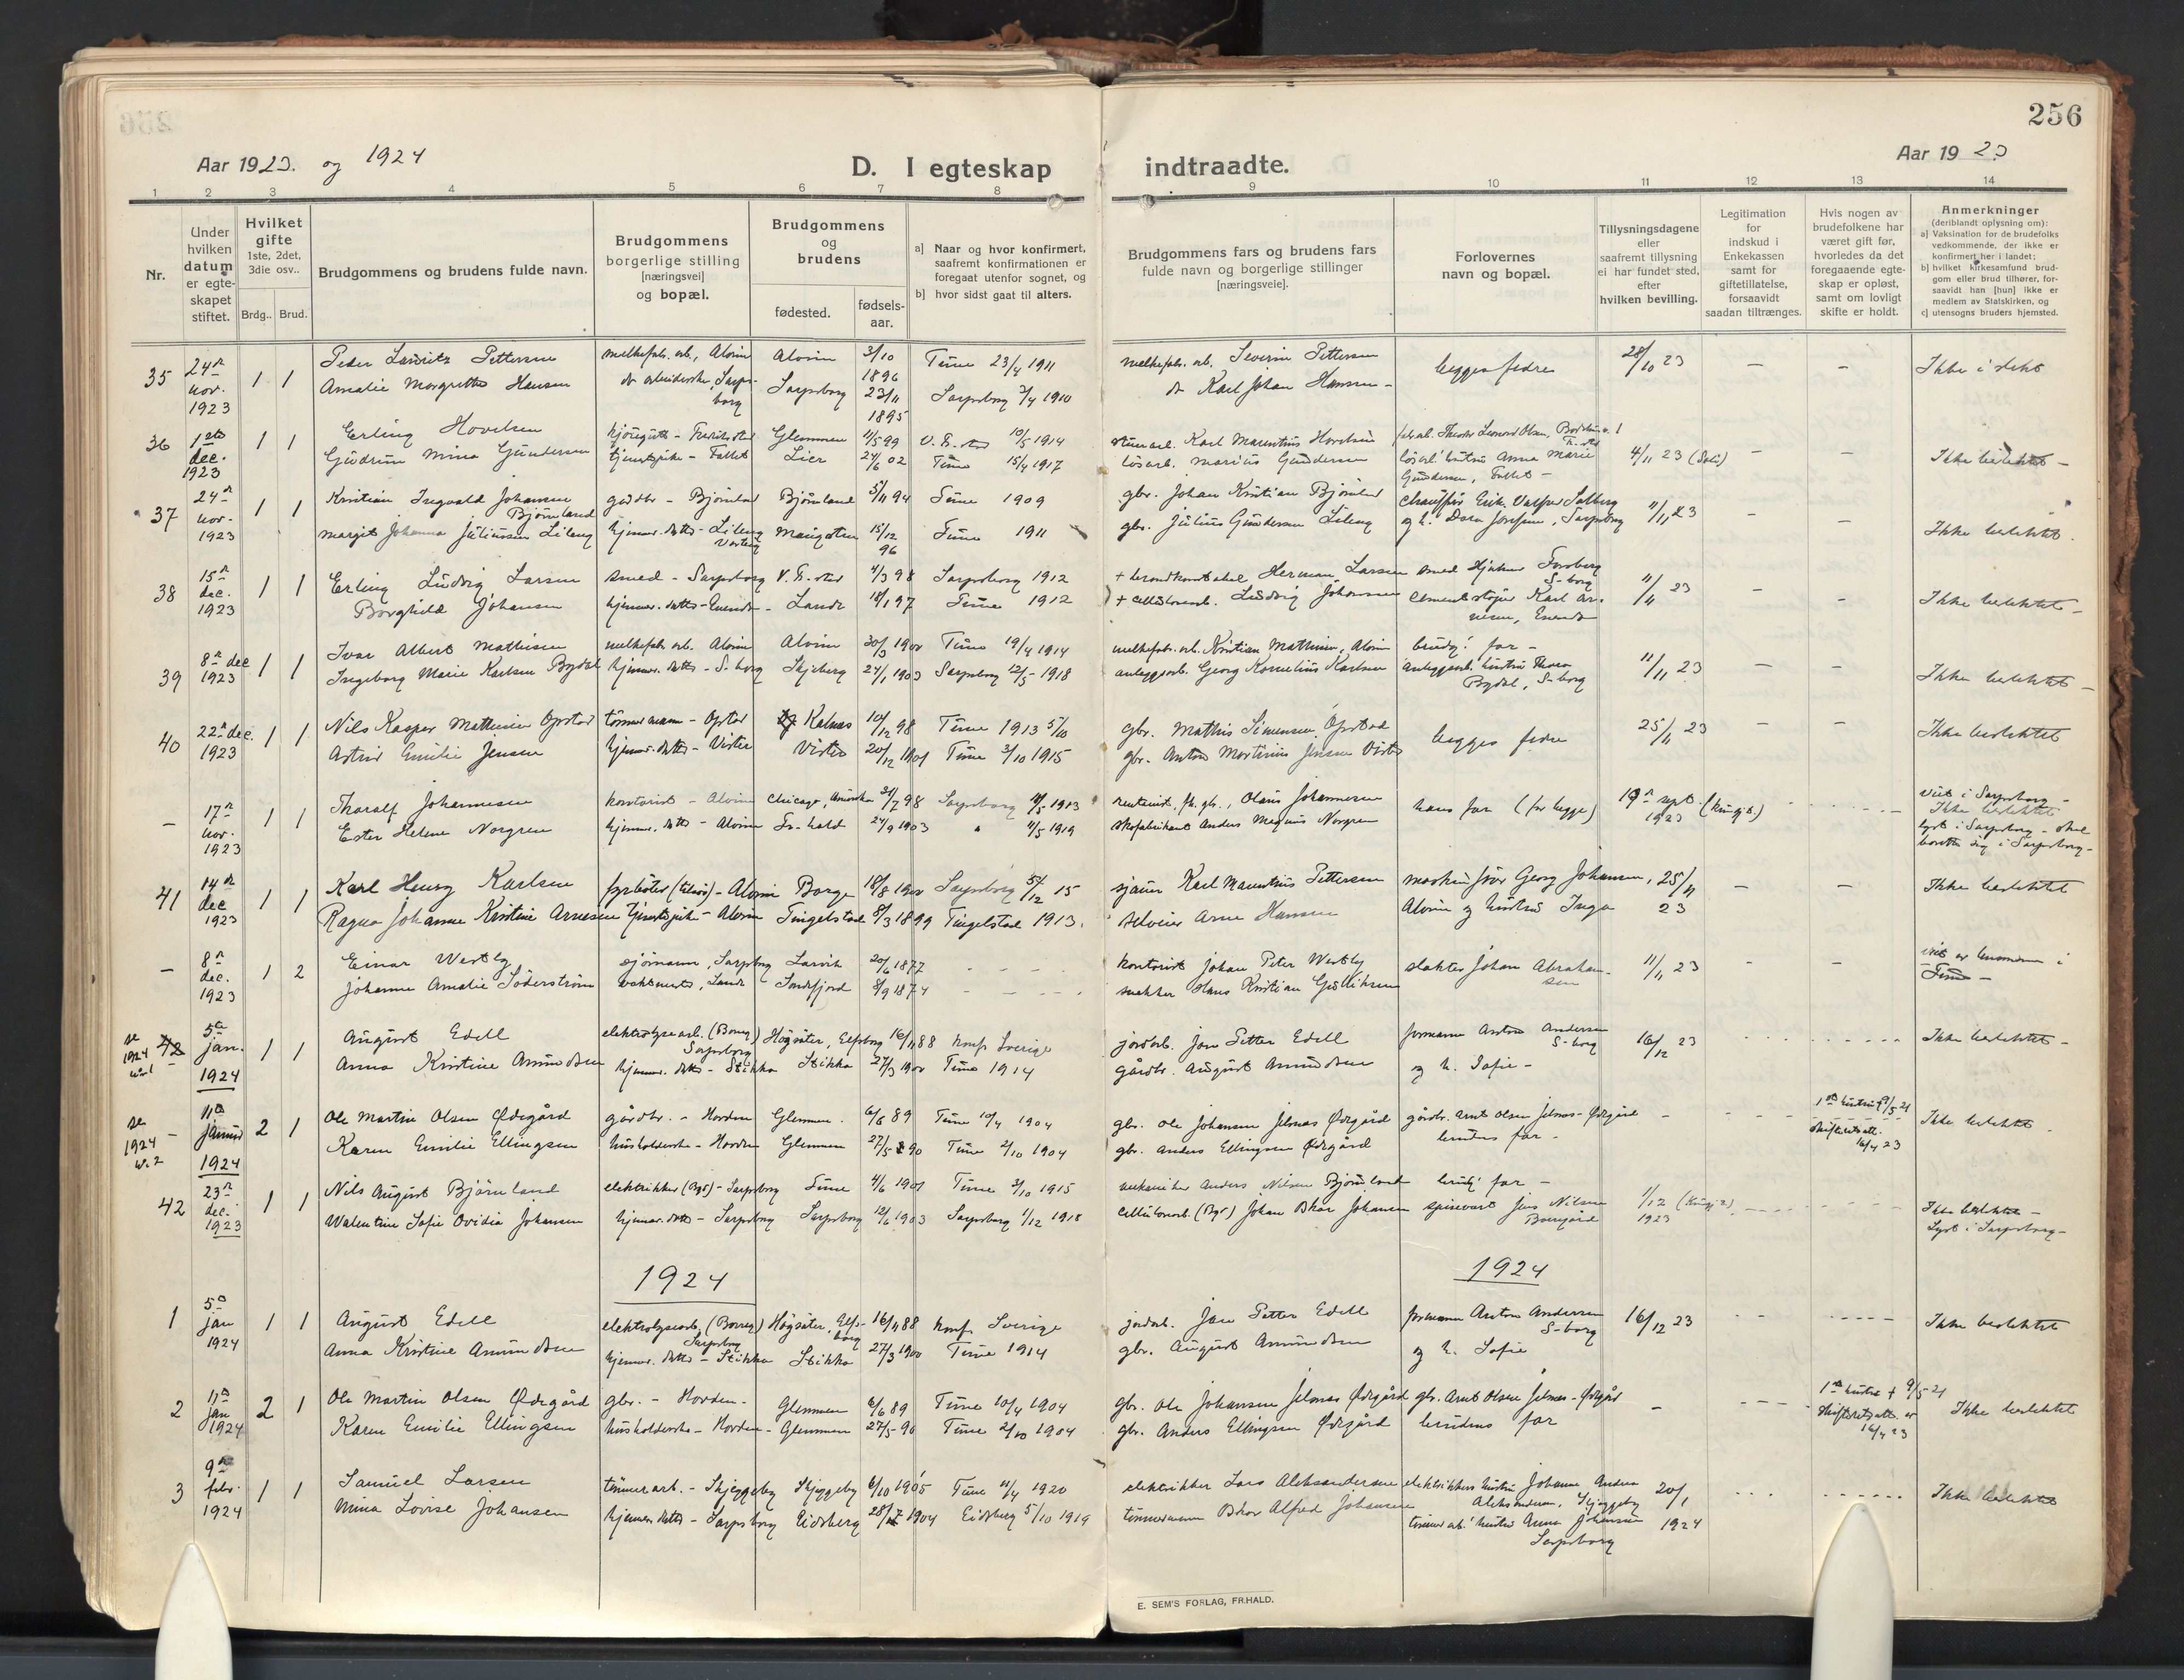 256
Aar 1923. og 1924
D. I egteskap indtraadte.
Aar 1923
1 2 3 4 5 6 7 8 9 10 11 12 13 14
Nr.
Under hvilken datum er egteskapet stiftet.
Hvilket gifte 1ste, 2det, 3die osv..
Brdg.. Brud.
Brudgommens og brudens fulde navn.
Brudgommens borgerlige stilling [næringsvei] og bopæl.
Brudgommens og brudens
fødested.
fødselsaar.
a) Naar og hvor konfirmert, saafremt konfirmationen er foregaat utenfor sognet, og
b) hvor sidst gaat til alters.
Brudgommens fars og brudens fars fulde navn og borgerlige stillinger [næringsveie].
Forlovernes navn og bopæl.
Tillysningsdagene eller saafremt tillysning ei har fundet sted, efter hvilken bevilling.
Legitimation for indskud i Enkekassen samt for giftetillatelse, forsaavidt saadan tiltrænges.
Hvis nogen av brudefolkene har været gift før, hvorledes da det foregaaende egteskap er opløst, samt om lovligt skifte er holdt.
Anmerkninger (deriblandt oplysning om): a) Vaksination for de brudefolks vedkommende, der ikke er konfirmert her i landet; b) hvilket kirkesamfund brudgom eller brud tilhører, forsaavidt han [hun] ikke er medlem av Statskirken, og c) utensogns bruders hjemsted.
35 24de nov. 1923 1 1 Peder Lauritz Pettersen melkefab. arb, Alvim Alvim 3/10 1896 Tune 23/4 1911 melkefab. arb. Severin Pettersen begges fedre 28/10 23 – –
Amalie Margrethe Hansen Sarpsborg 23/11 1895 Sarpsborg 3/4 1910 do Karl Johan Hansen –
36 1ste dec. 1923 1 1 Erling Hovelsen Glemmen 11/5 99 10/5 1914 Karl Marentius Hovelsen 4/11 23 – – Ikke beslektet –
Gudrun Mina Gundersen tjenestepike – Lier 24/6 02 Tune 15/4 1917 løsarb. Marius Gundersen løsarb. hustru Anna Marie Gundersen,
37 24de nov. 1923 1 1 Kristian Ingvald Johansen Bjørnland gaardbr – Bjørnland Bjørnland 5/11 94 Tune 1909 gbr. Johan Kristian Bjørnland 11/11 23 – – Ikke beslektet.
Margit Johanne Juliussen Lileng hjemmev. datter – Lileng 15/12 96 Tune 1911 gbr. Julius Gundersen Lileng Sarpsborg
38 15de dec. 1923 1 1 Erling Ludvig Larsen smed – Sarpsborg 4/3 98 Sarpsborg 1912 Herman Larsen smed Hjalmar Forsberg S-borg 11/11 23 – – Ikke beslektet –
Borghild Johansen hjemmev. datter – Lande 18/1 97 Tune 1912 + cellulosearb. Ludvig Johansen
39 8de dec 1923 1 1 Ivar Albert Mathisen melkefab. arb. Alvim Alvim 30/3 1900 Tune 19/4 1914 melkefab. arb. Kristian Mathisen, Alvim brudg. far – 11/11 23 – – Ikke beslektet –
Ingeborg Marie Karlsen Bydal hjemmev. datter – S-borg Skjeberg 24/1 1903 Sarpsborg 12/5 1918 anlægsarb. Georg Kornelius Karlsen anlægsarb. hustru Thora Bydal, S-borg
40 22de dec. 1923 1 1 Nils Kaspar Mathisen Opstad tømmermann – Opstad Kalnes 10/12 98 Tune 1913 5/10 gbr. Mathis Simensen Opstad begges fedre 25/11 23 – – Ikke beslektet
Astrid Emilie Jensen hjemmev. datter – Vister Vister 20/12 1901 Tune 3/10 1915 gbr. Anton Martinius Jensen Vister
– 17de nov. 1923 1 1 Thoralf Johannesen kontorist – Alvim Chicago, Amerika 31/7 98 Sarpsborg 1913 Olaus Johannesen hans far (for begge) sept. 1923 Viet i Sarpsborg –
Ester Helene Norgren hjemmev. datter – Alvim Fr-hald 24/9 1903 " 4/5 1919 skofabrikant Anders Magnus Norgren Ikke beslektet
lyst i Sarpsborg – skal
bosætte sig i Sarpsborg –
41 14de dec 1923 1 1 Karl Henry Karlsen fyrbøter – Alvim Borge 18/8 1900 Sarpsborg 15 sjauer Karl Marentius Pettersen Georg Johansen, 25/11 23 – – Ikke beslektet
Ragna Johanne Kristine Arnesen tjenestepike – Alvim Tingelstad 8/3 1899 Tingelstad 1913. Arne Hansen Alvim og hustru Inga
– 8de dec. 1923 1 2 Einar Westby sjømann, Sarpsborg Larvik 20/6 1877 – – – kontorist Johan Peter Westby slakter Johan Abrahamsen 11/11 23 – –
Johanne Amalie Söderström Lande Sandefjord 8/9 1874 – – – snekker Hans Kristian Gulliksen
se 1924 nr. 1 42 5te jan. 1924 1 1 August Edell elektrolysearb. (Borreg) Sarpsborg Högsäter, Elfsborg 16/11 88 konf. Sverige jordarb. Jan Petter Edell formann Anton Andersen S-borg 16/12 23 Ikke beslektet –
Anna Kristine Amundsen hjemmev. datter – Stikka Stikka 27/3 1900 Tune 1914 gårdbr. August Amundsen og h. Sofie –
se 1924 nr. 2 – 11te januar 1924 2 1 Ole Martin Olsen Ødegård gårdbr. – Horden Glemmen. 6/6 89 Tune 10/4 1904 gbr. Ole Johansen Jelsnes Ødegård gårdbr. Arnt Olsen Jelsnes – Ødegård – 1ste hustru † 9/5 21 skifteretsatt. 16/4 23 Ikke beslektet.
Karen Emilie Ellingsen husholderske – Horden Glemmen 27/5 90 Tune 2/10 1904 gbr. Anders Ellingsen Ødegård brudens far –
42 23de dec. 1923 1 1 Nils August Bjørnland elektrikker – Sarpsborg Tune 4/6 1901 Tune 3/10 1915 mekaniker Anders Nilsen Bjørnland brudg. far – 1/12 1923 Ikke beslektet –
Walentine Sofie Ovidia Johansen hjemmev. datter – Sarpsborg Sarpsborg 12/6 1903 Sarpsborg 1/12 1918 cellulosearb. Johan Oskar Johansen spisevert Jens Nilsen Lyst i Sarpsborg –
1924 1924
1 5te jan 1924 1 1 August Edell elektrolysearb. (Borreg) Sarpsborg Högsäter, Elfsborg 16/11 88 konf. Sverige jordarb. Jan Petter Edell formann Anton Andersen S-borg 16/12 23 Ikke beslektet
Anna Kristine Amundsen hjemmev. datter – Stikka Stikka 27/3 1900 Tune 1914 gbr. August Amundsen og h. Sofie
2 11te jan 1924 2 1 Ole Martin Olsen Ødegård gbr. – Horden – Glemmen 6/6 89 Tune 10/4 1904 gbr. Ole Johansen Jelsnes Ødegård gbr. Arnt Olsen Jelsnes – Ødegård – 1ste hustru † 9/5 21 skifteretsatt. av 16/4 23 Ikke beslektet
Karen Emilie Ellingsen husholderske – Horden – Glemmen 27/5 – 90 Tune 2/10 1904 gbr. Anders Ellingsen Ødegård brudens far
3 9de febr. 1924 1 1 Samuel Larsen tømmerarb. – Skjeggeby Skjeggeby 6/10 1905 Tune 11/4 1920 elektrikker Lars Aleksandersen elektrikkers hustru Johanne Andrea Aleksandersen, Skjeggeby 20/1 1924 Ikke beslektet
Mina Lovise Johansen hjemmev. datter – Sarpsborg Eidsberg 1904 Eidsberg 5/10 1919 tømmermann Oskar Alfred Johansen tømmerarb. hustru Anna Johansen Sarpsborg
E. SEM'S FORLAG, FR.HALD.